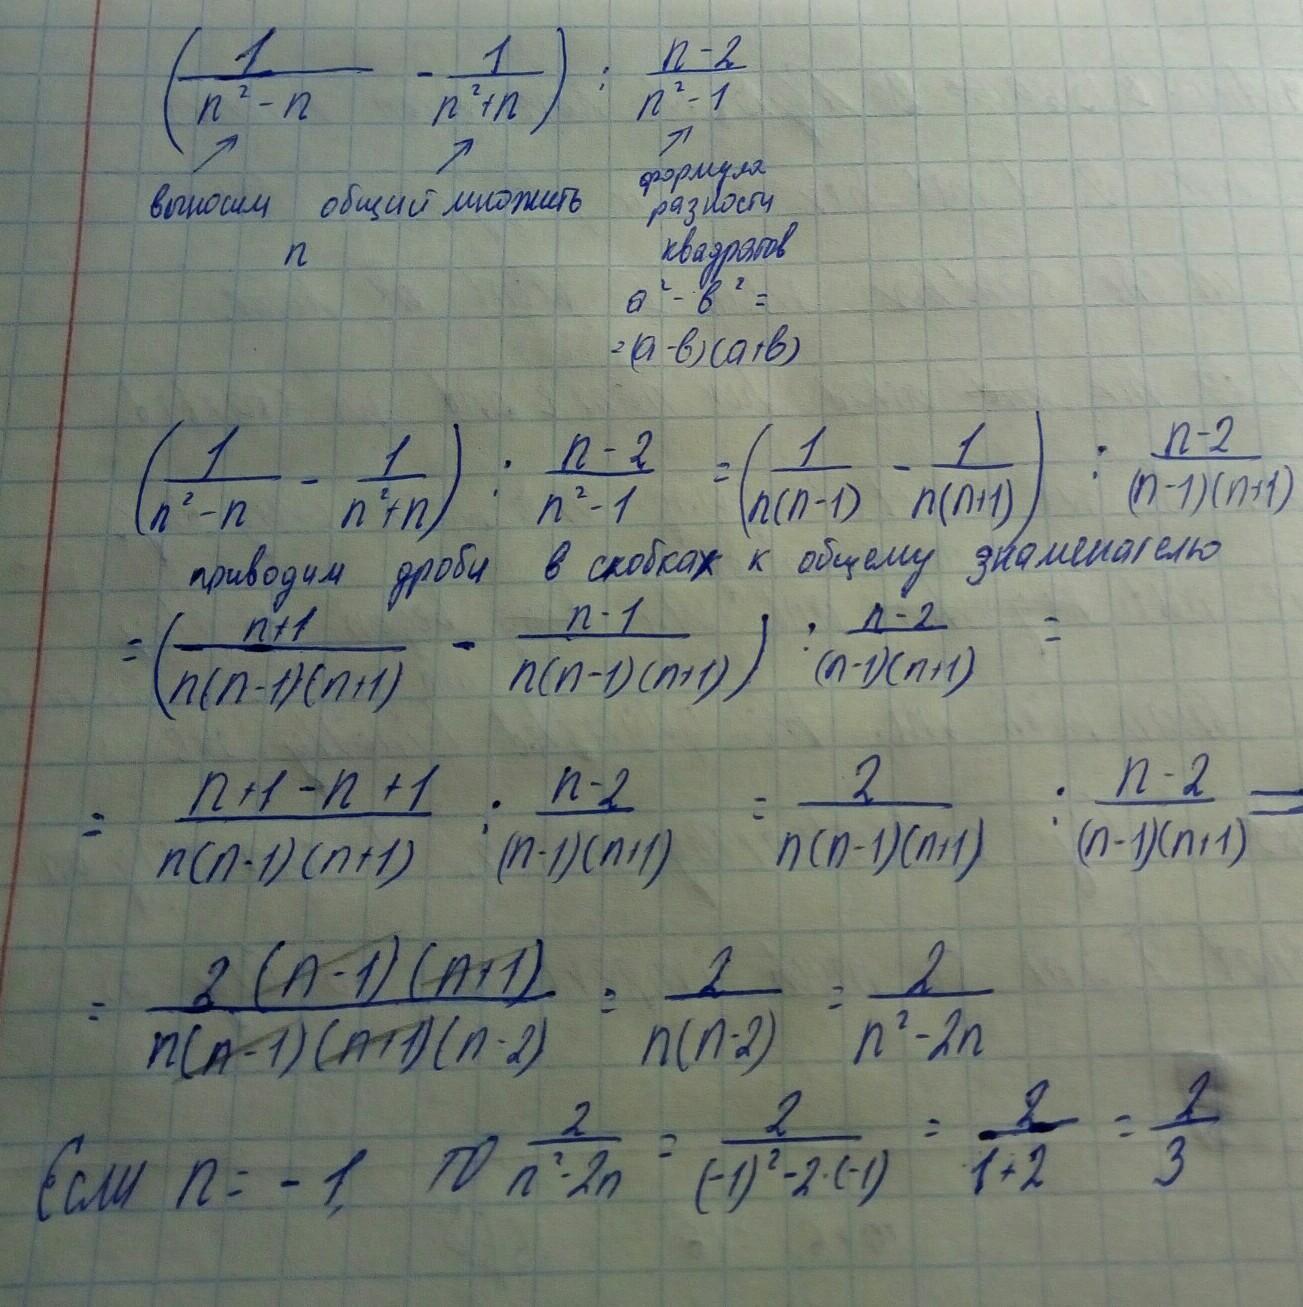 (1/(n² - n) - 1/(n²+n)) : (n-2)/(n²-1)
выносим общий множить
n
формула
разности
квадратов
a² - в² =
=(a-в)(a+в)
(1/(n²-n) - 1/(n²+n)) : (n-2)/(n²-1) = (1/(n(n-1)) - 1/(n(n+1))) : (n-2)/((n-1)(n+1))
приводим дроби в скобках к общему знаменателю
= ((n+1)/(n(n-1)(n+1)) - (n-1)/(n(n-1)(n+1))) : (n-2)/((n-1)(n+1)) =
= (n+1-n+1)/(n(n-1)(n+1)) : (n-2)/((n-1)(n+1)) = 2/(n(n-1)(n+1)) : (n-2)/((n-1)(n+1)) =
= (2(n-1)(n+1))/(n(n-1)(n+1)(n-2)) = 2/(n(n-2)) = 2/(n²-2n)
Если n = -1, то 2/(n²-2n) = 2/((-1)²-2·(-1)) = 2/(1+2) = 2/3